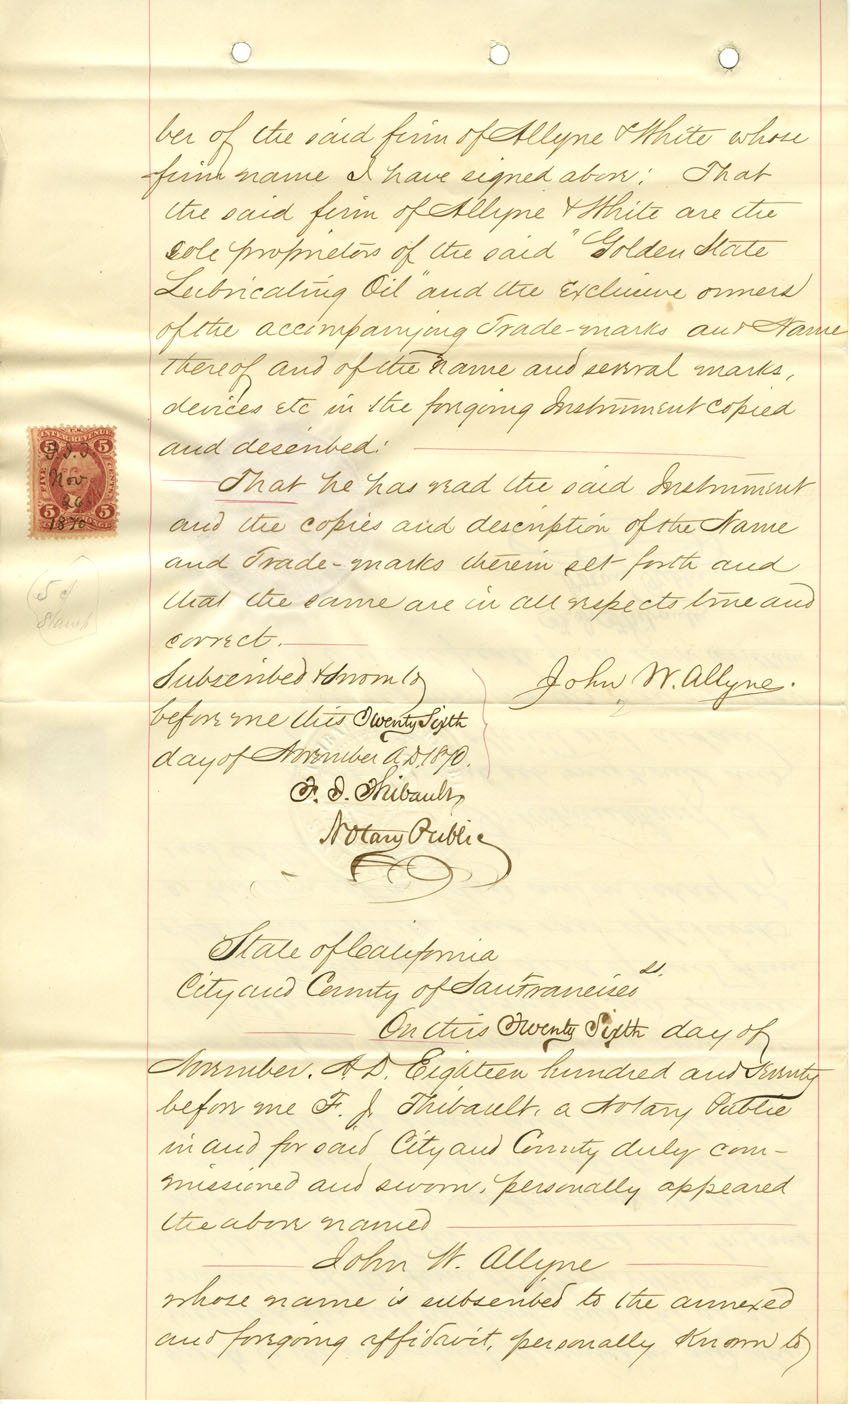 ber of the said firm of Allyne & White whose
firm name I have signed above; That
the said firm of Allyne & White are the
sole proprietors of the said "Golden State
Lubricating Oil" and the exclusive owners
of the accompanying Trade-marks and Name
thereof and of the name and several marks,
devices etc in the foregoing Instrument copied
and described:
That he has read the said Instrument
and the copies and description of the Name
and Trade-marks therein set forth and
that the same are in all respects true and
correct.
Subscribed & sworn to
before me this Twenty Sixth
day of November A.D. 1870.
John W. Allyne.
F. J. Thibault
Notary Public
INTER. REVENUE
5 5
F.J.T
Nov
26
1870
FIVE CENTS
5 5
5 ct
Stamp
State of California
City and County of San Francisco ss.
On this Twenty Sixth day of
November. A.D. Eighteen hundred and seventy
before me F. J. Thibault, a Notary Public
in and for said City and County duly com-
missioned and sworn, personally appeared
the above named
John W. Allyne
whose name is subscribed to the annexed
and foregoing affidavit, personally known to